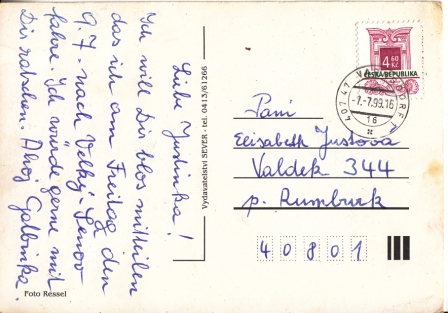 Liebe Justinka!
Ich will Dir blos mitteilen
das ich am Freitag den
9.7. nach Velký-Šenov
fahre. Ich würde gerne mit
Dir ratschen. Ahoj Golbinka.
Foto Ressel
Vydavatelství SEVER - tel. 0413/61266
4 60
Kč
ČESKÁ REPUBLIKA
407 47 VARNSDORF 1
-7.-7.99.16
16
Paní
Elisabeth Justova
Valdek 344
p. Rumburk
40801